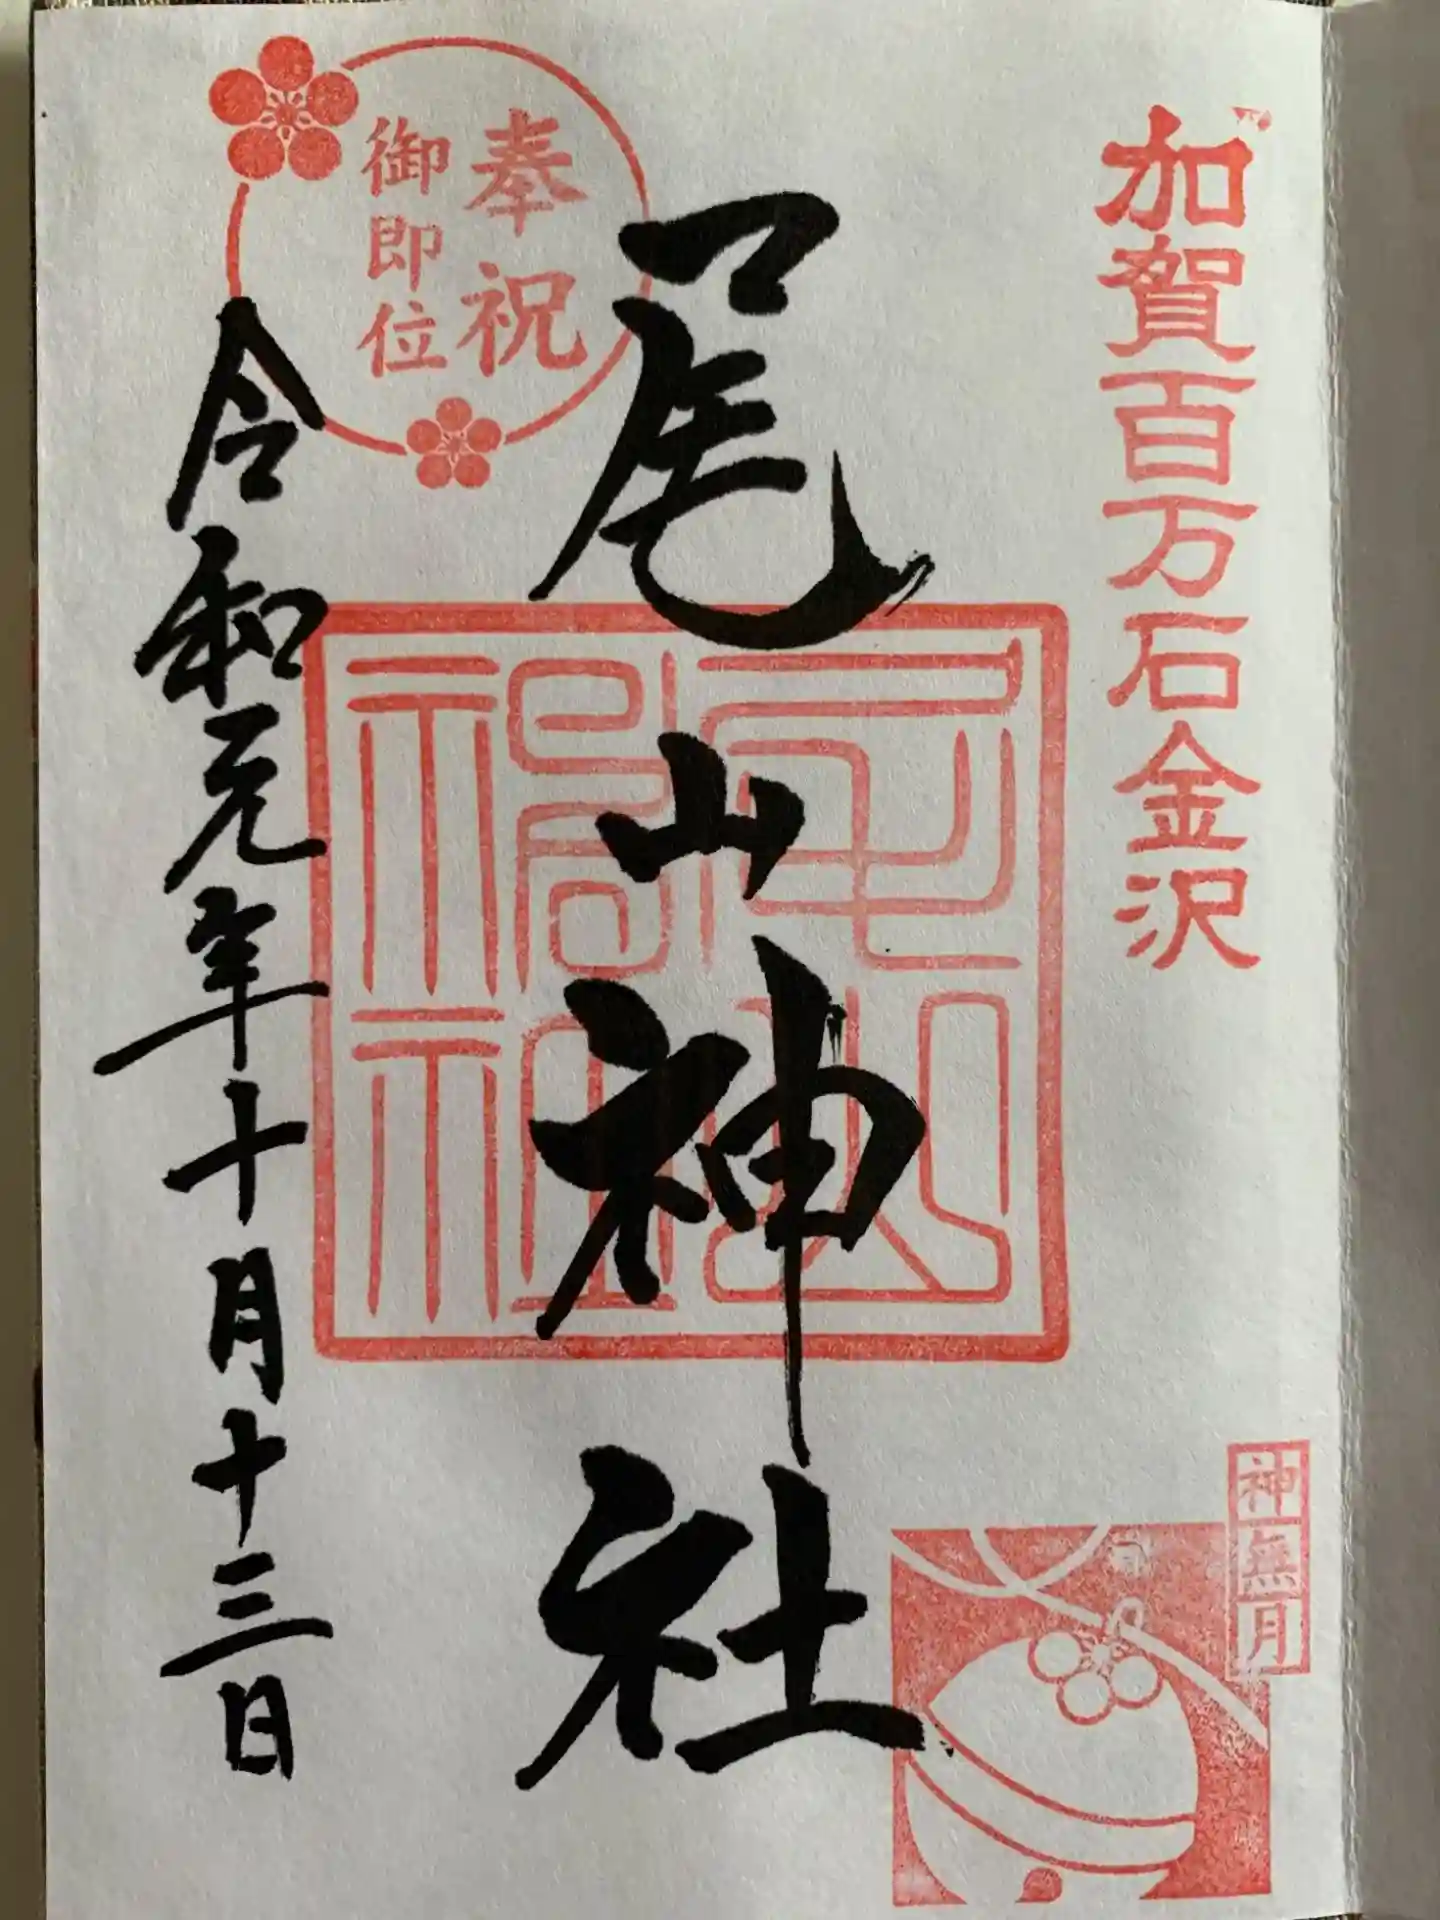 加賀百万石金沢
奉祝
御即位
尾山神社
尾山神社
令和元年十月十三日
神無月